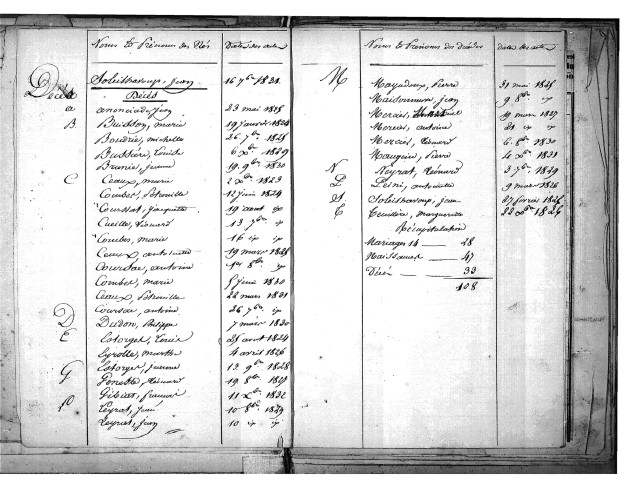 Noms & Prénoms des Nés Dates des actes
Soleilhavoup, Jean 16 7bre 1831
Décès Décès
a anonciade, Jean 23 mai 1825
B Buisson, marie 19 janvier 1824
Bouerie, michelle 26 7bre 1828
Bussière, Louise 6 xbre 1829
Brunie, jeanne 19 9bre 1830
C Ceaux, marie 2 xbre 1823
Combes, Petronille 12 juin 1824
Coursat, Jacquette 19 aout id
Cueille, Léonard 13 7bre id
Combes, marie 16 id id
Ceaux, antoinette 19 mars 1825
Coursac, antoine 1er 8bre id
Combes, marie 5 juin 1830
Ceaux, Petronille 22 mars 1831
Coursac, antoine 26 7bre id
D Dudon, Philippe 7 mars 1830
E Estorges, Louise 25 aout 1824
Eyrolle, marthe 4 avril 1826
Estorges, jeanne 13 9bre 1828
G Geneste, Léonard 19 8bre 1825
Gibiat, françois 11 xbre 1832
Leyrat, Jean 10 8bre 1829
Leyrat, Jean 10 id id
Noms & Prénoms des Décédés dates des actes
M Mayadoux, Pierre 31 mai 1825
Maisonneuve, Jean 9 8bre id
Mercier, 9 mars 1827
Mercier, antoine 21 id id
Mercier, Léonard 6 8bre 1830
Maugein, Pierre 4 xbre 1831
N Neyrat, Léonard 3 7bre 1829
P antoinette 9 mars 1826
S Soleilhavoup, Jean 27 février 1825
T marguerite 22 xbre 1826
Récapitulation
Mariages 14 — 28
Naissances — 47
Décès — 33
108